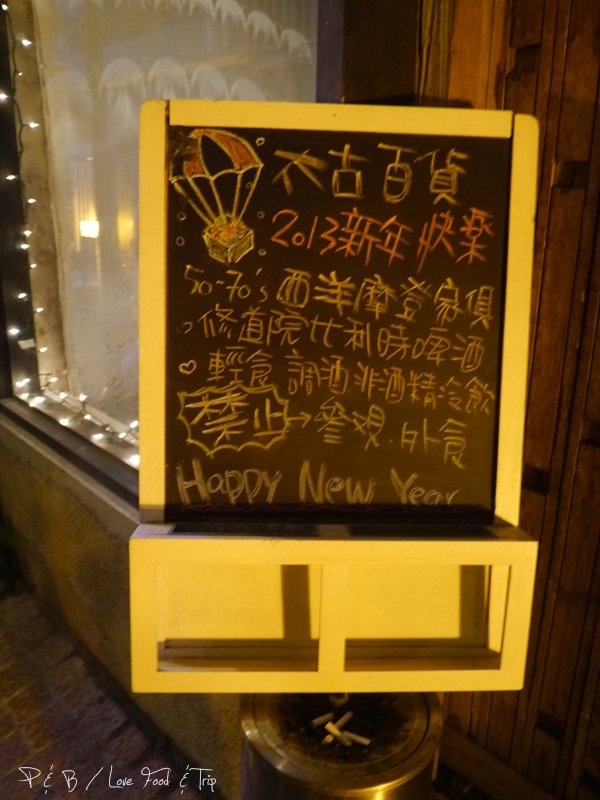 太古百貨
2013新年快樂
50-70's西洋摩登家俱
修道院比利時啤酒
輕食 調酒 非酒精冷飲
禁止→參观.外食
Happy New Year
P & B / Love Food & Trip